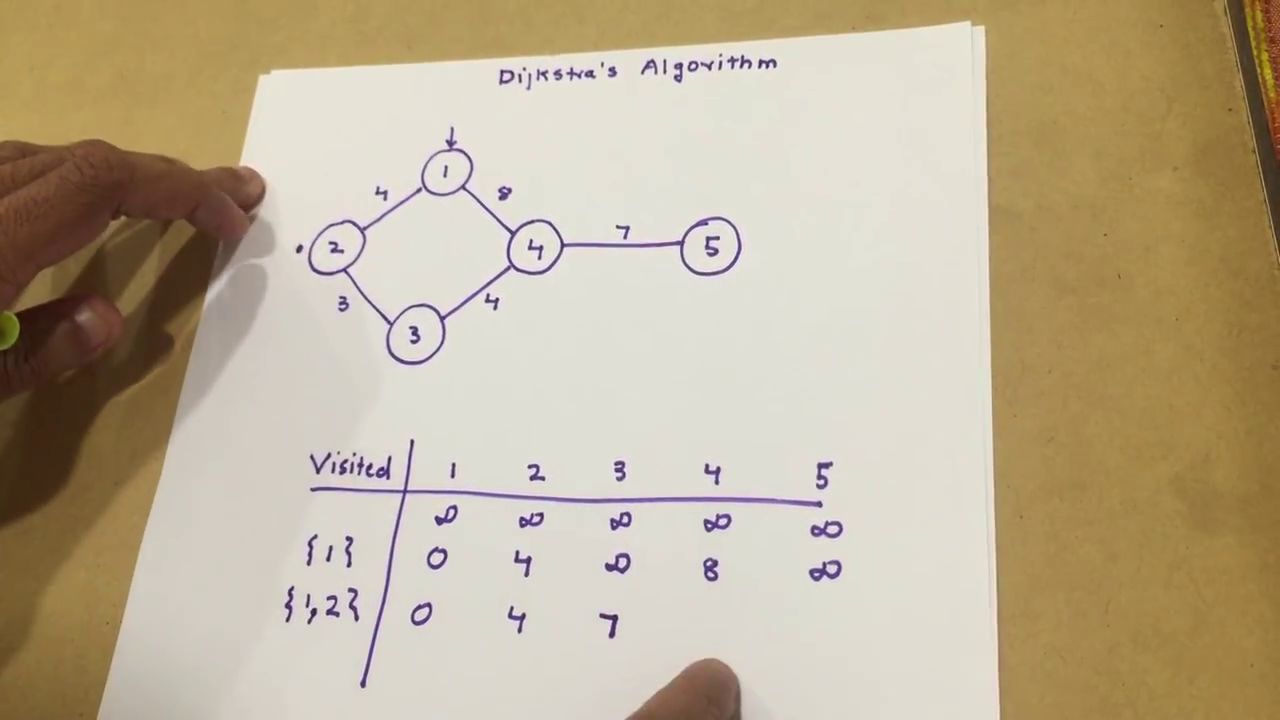 Dijkstra's Algorithm
1
4 8
2 4 7 5
3 4
3
Visited 1 2 3 4 5
∞ ∞ ∞ ∞ ∞
{1} 0 4 ∞ 8 ∞
{1,2} 0 4 7